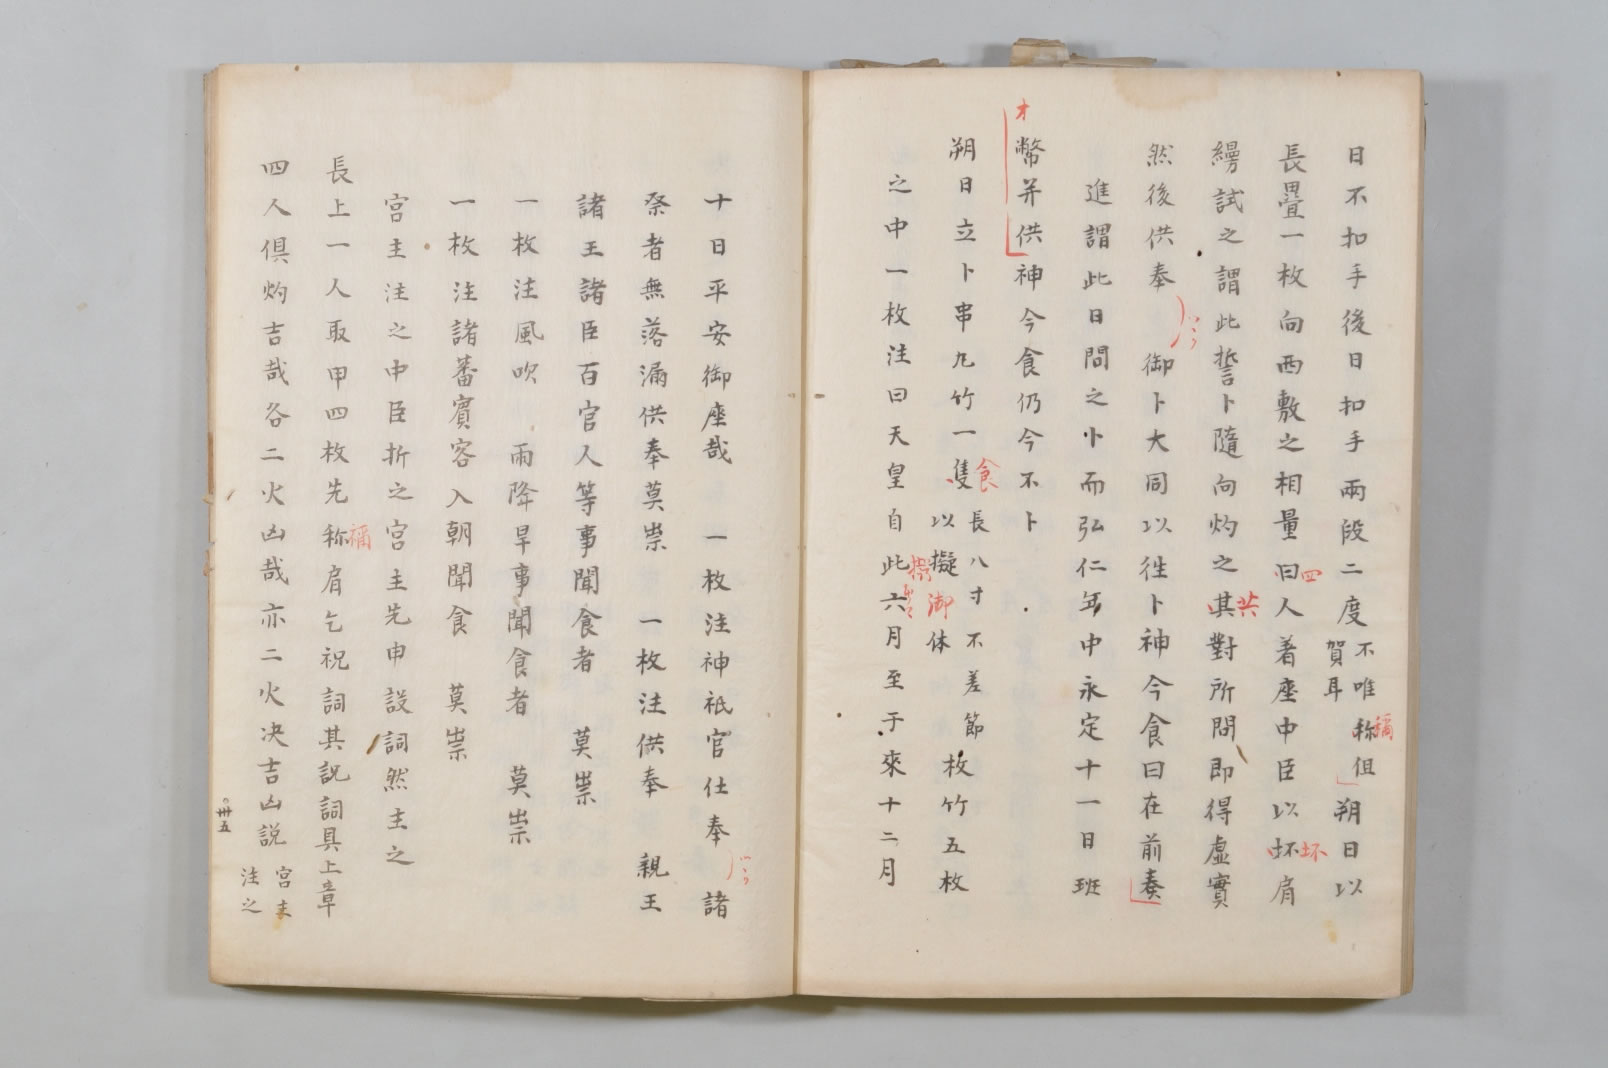 日不扣手後日扣手兩段二度不唯称但賀耳朔日以
稱
長畳一枚向西敷之相量曰人着座中臣以坏肩
四
坏
縵試之謂此誓卜隨向灼之其對所問即得虚實
共
然後供奉御卜大同以徃卜神今食曰在前奏
進謂此日問之卟而弘仁年中永定十一日班
幣并供神今食仍今不卜
朔日立卜串九竹一隻長八寸不差節以擬御体枚竹五枚
食
之中一枚注曰天皇自此六月至于來十二月
十日平安御座哉 一枚注神祇官仕奉諸
祭者無落漏供奉莫祟 一枚注供奉親王
諸王諸臣百官人等事聞食者 莫祟
一枚注風吹 雨降旱事聞食者 莫祟
一枚注諸蕃賓客入朝聞食 莫祟
宮主注之中臣折之宮主先申設詞然主之
長上一人取甲四枚先称肩乞祝詞其説詞具上章
稱
四人倶灼吉哉各二火凶哉亦二火决吉凶説宮主注之
卅五